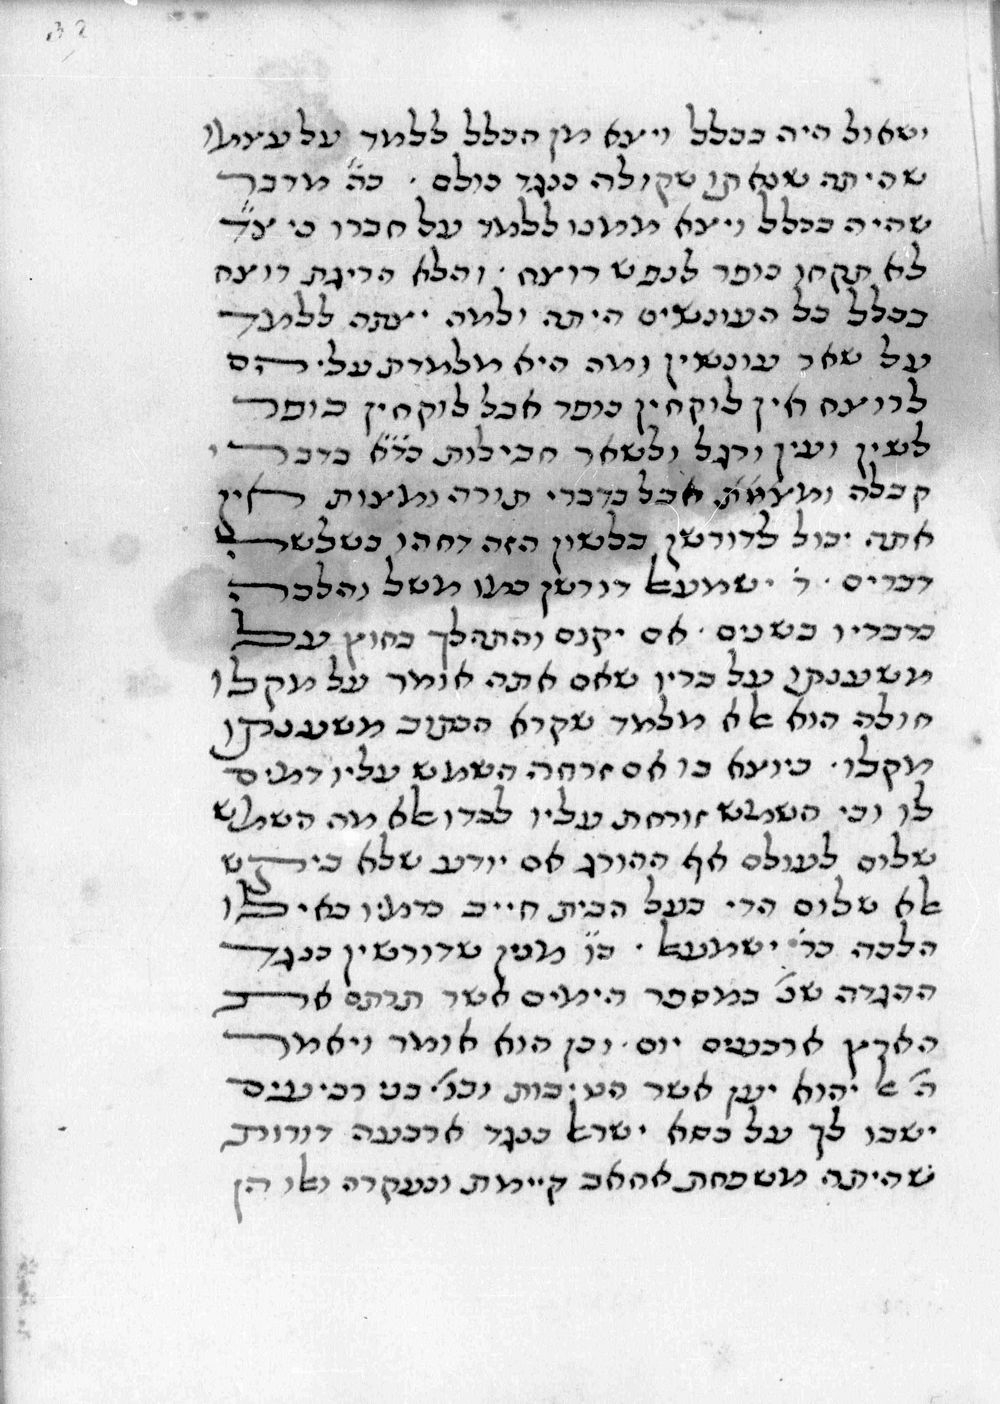 ושאול היה בכלל ויצא מן הכלל ללמד על עצמו
שהיתה שנאתו שקולה כנגד כולם · כ̈ה מדבר
שהיה בכלל ויצא ממנו ללמד על חברו כי צ̈ד
לא תקחו כופר לנפש רוצח · והלא הריגת רוצח
בכלל כל העונשים היתה ולמה יצתה ללמד
על שאר עונשין ומה היא מלמדת עליהם
לרוצח אין לוקחין כופר אבל לוקחין כופר
לשין ועין ורגל ולשאר חבילות בד̈א בדברי
קבלה ומצאת אבל בדברי תורה ומצות אין
אתה יכול לדורשן בלשון הזה דחהו בשלשה
דברים · ר׳ ישמעאל דורשן כמו משל והלכה
בדבריו בשנים · אם יקום והתהלך בחוץ על
משענתו על בריו שאם אתה אומר על מקלו
חולה הוא אלא מלמד שקרא הכתוב משענתו
מקלו · כיוצא בו אם זרחה השמש עליו דמים
לו וכי השמש זורחת עליו לבדו אלא מה השמש
שלום לעולם אף ההורג אם יודע שלא ביקש
אלא שלום הרי בעל הבית חייב בדמיו כאילו
הלכה כר׳ ישמעאל · כ̈ו מנין שדורשין כנגד
ההגדה שנ׳ במספר הימים אשר תרתם את
הארץ ארבעים יום · וכן הוא אומר ויאמר
ה׳ אל יהוא יען אשר הטיבות וכו׳ בני רביעים
ישבו לך על כסא ישראל כנגד ארבעה דורות
שהיתה משפחת אחאב קיימת ונעקרה ואלו הן